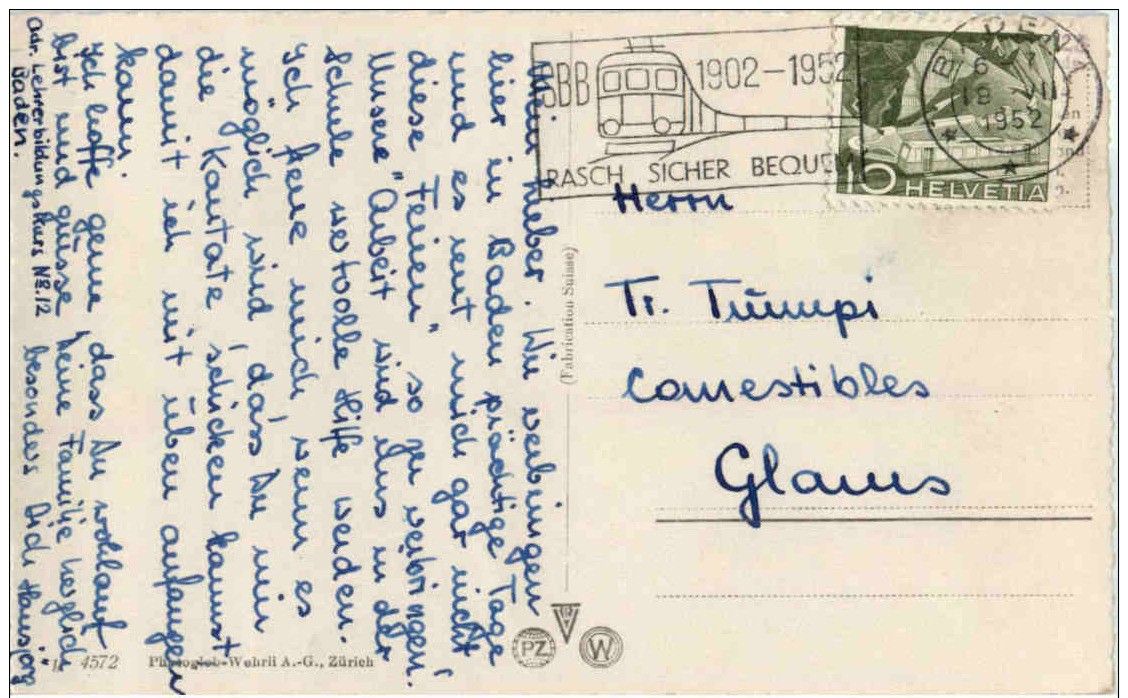 SBB 1902-1952
RASCH SICHER BEQUEM
1952
10 HELVETIA
Herrn
Tr. Tümpi
Comestibles
Glarus
Mein Lieber. Wir verbringen
hier in Baden prächtige Tage
und es reut mich gar nicht
diese "Ferien" so zu verbringen.
Unsere "Arbeit" wird uns in der
Schule wertvolle Hilfe werden.
Ich freue mich wenn es
möglich wird, dass Du mir
die Kantate schicken kannst
damit ich mit üben anfangen
kann.
Ich hoffe gerne dass Du wohlauf
bist und grüsse Deine Familie herzlich
besonders Dich Hansjörg
Adr. Lehrerbildungskurs No. 12
Baden.
(Fabrication Suisse)
PZ
W
4572 Photoglob-Wehrli A.-G., Zürich